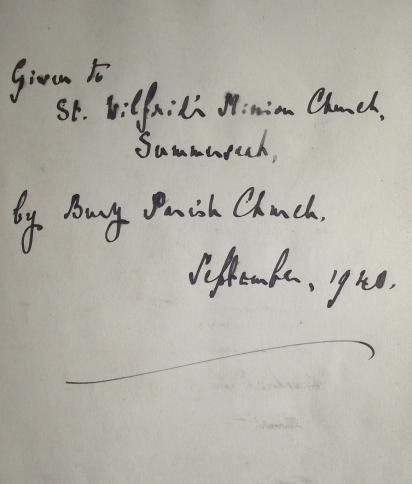 Given to
St. Wilfrid's Mission Church,
Summerseat,
by Bury Parish Church.
September, 1940.